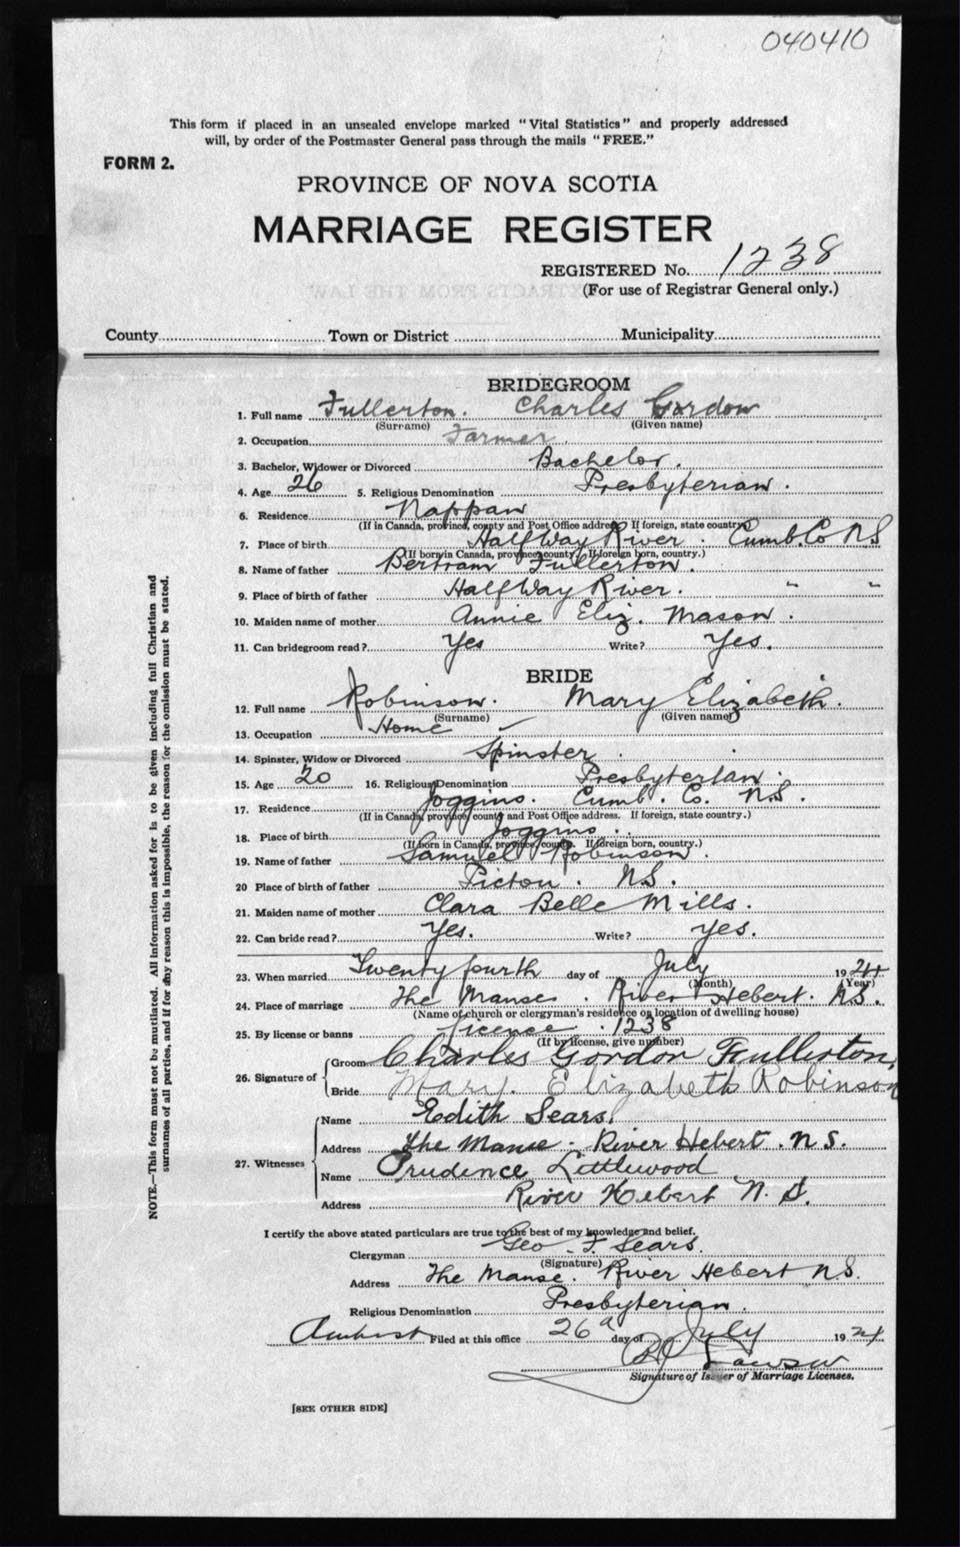 040410
This form if placed in an unsealed envelope marked "Vital Statistics" and properly addressed
will, by order of the Postmaster General pass through the mails "FREE."
FORM 2.
PROVINCE OF NOVA SCOTIA
MARRIAGE REGISTER
REGISTERED No. 1238
(For use of Registrar General only.)
County Town or District Municipality
BRIDEGROOM
1. Full name Fullerton. Charles Gordon
(Surname) (Given name)
2. Occupation Farmer
3. Bachelor, Widower or Divorced Bachelor.
4. Age 26 5. Religious Denomination Presbyterian.
6. Residence Nappan
(If in Canada, province, county and Post Office address. If foreign, state country.)
7. Place of birth Halfway River. Cumb. Co NS
(If born in Canada, province, county. If foreign born, country.)
8. Name of father Bertram Fullerton.
9. Place of birth of father Halfway River. " "
10. Maiden name of mother Annie Eliz. Mason.
11. Can bridegroom read? Yes Write? Yes.
BRIDE
12. Full name Robinson. Mary Elizabeth.
(Surname) (Given name)
13. Occupation Home
14. Spinster, Widow or Divorced Spinster
15. Age 20 16. Religious Denomination Presbyterian.
17. Residence Joggins. Cumb. Co. N.S.
(If in Canada, province, county and Post Office address. If foreign, state country.)
18. Place of birth Joggins.
(If born in Canada, province, county. If foreign born, country.)
19. Name of father Samuel Robinson.
20 Place of birth of father Pictou. N.S.
21. Maiden name of mother Clara Belle Mills.
22. Can bride read? Yes. Write? Yes.
23. When married Twenty fourth day of July 1924
(Month) (Year)
24. Place of marriage The Manse. River Hebert. N.S.
(Name of church or clergyman's residence or location of dwelling house)
25. By license or banns licence. 1238
(If by license, give number)
26. Signature of Groom Charles Gordon Fullerton,
Bride Mary. Elizabeth Robinson
27. Witnesses Name Edith Sears.
Address The Manse. River Hebert. N.S.
Name Prudence Littlewood
Address River Hebert N. S.
I certify the above stated particulars are true to the best of my knowledge and belief.
Clergyman Geo. F. Sears.
(Signature)
Address The Manse. River Hebert N.S.
Religious Denomination Presbyterian.
Amherst Filed at this office 26 day of July 1924
Dawson
Signature of Issuer of Marriage Licenses.
[SEE OTHER SIDE]
NOTE.—This form must not be mutilated. All information asked for is to be given including full Christian and
surnames of all parties, and if for any reason this is impossible, the reason for the omission must be stated.